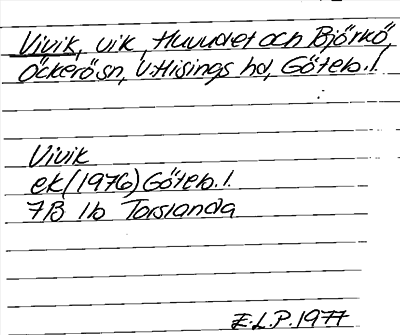 Vivik, vik, Huvudet och Björkö,
Öckerö sn, V. Hisings hd, Göteb. l.
Vivik
ek (1976) Göteb. l.
7B 1b Torslanda
E.L.P. 1977